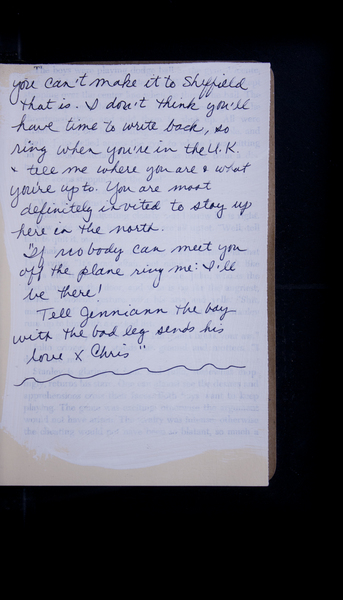 you can't make it to Sheffield
that is. I don't think you'll
have time to write back, so
ring when you're in the U.K.
& tell me where you are & what
you're up to. You are most
definitely invited to stay up
here in the north.
"If nobody can meet you
off the plane ring me: I'll
be there!
Tell Jenniann the boy
with the bad leg sends his
love x Chris"